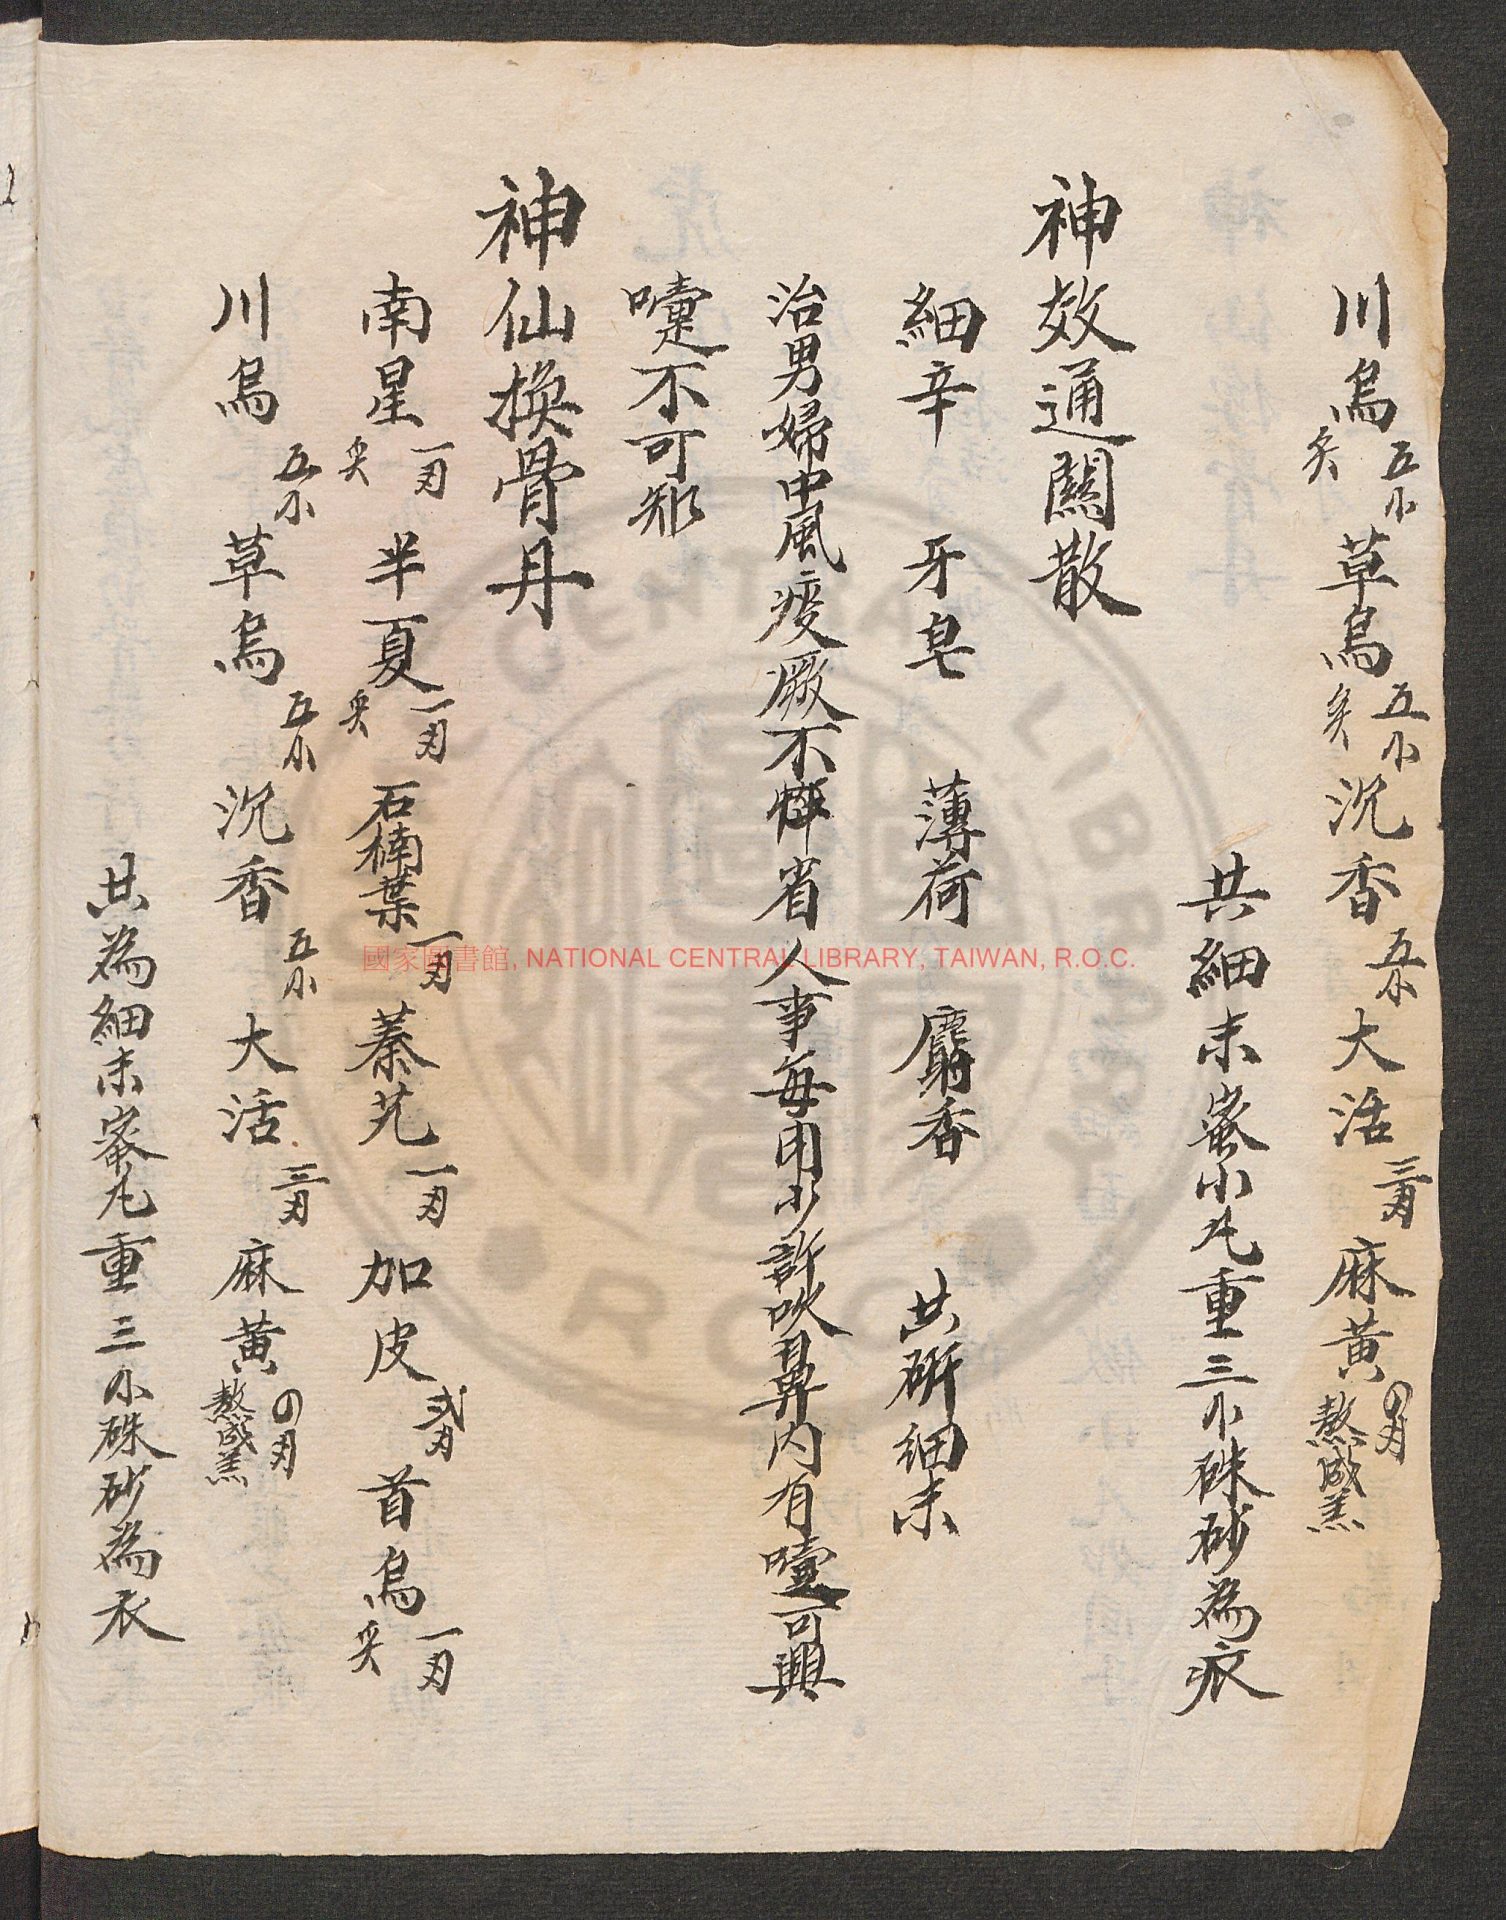 川烏五小炙草烏五小炙沉香五小大活三刃麻黄四刃熬成羔
共細末蜜小丸重三小硃砂為衣
神效通關散
細辛 牙皂 薄荷 麝香 共研細末
治男婦中風痰厥不醒省人事每用少許吹鼻内有嚏可興
嚏不可
神仙換骨丹
南星一刃炙半夏一刃炙石楠葉一刃蓁艽一刃加皮弍刃首烏一刃炙
川烏五小草烏五小沉香五小大活三刃麻黄四刃熬成羔
共為細末蜜丸重三小硃砂為衣
國家圖書館, NATIONAL CENTRAL LIBRARY, TAIWAN, R.O.C.